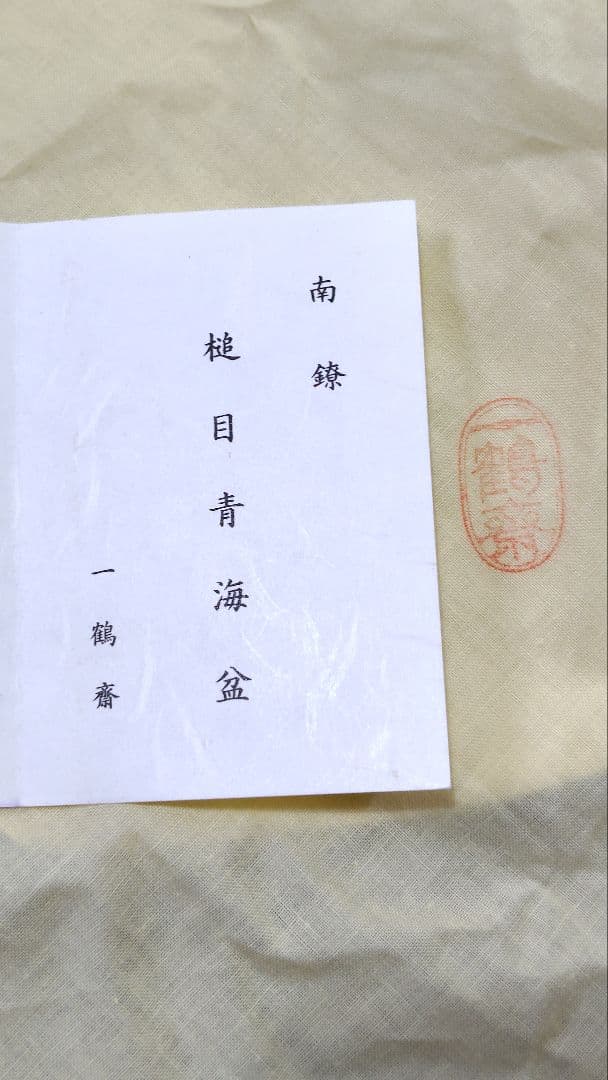 南鐐
槌目青海盆
一鶴齋
一鶴齋